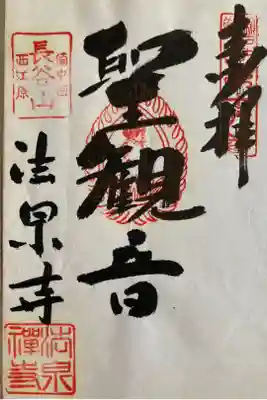 奉拝
聖観音
備中国
長谷山
西江原
法泉寺
法泉
禪寺